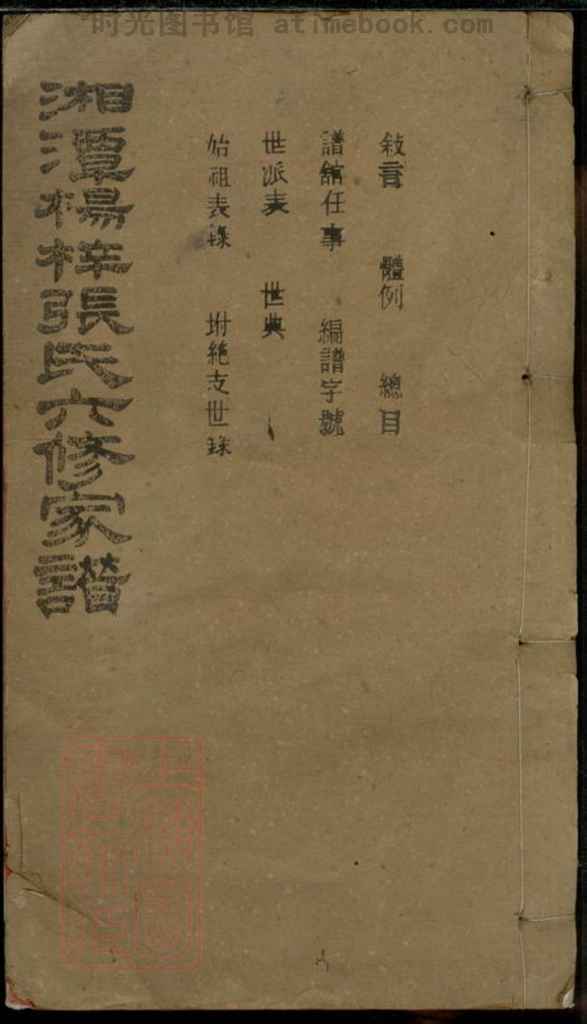 时光图书馆 atimebook.com
敍言 體例 總目
譜館任事 編譜字號
世派表 世典
始祖表錄 坿絶支世錄
湘潭楊梓張氏六修家譜